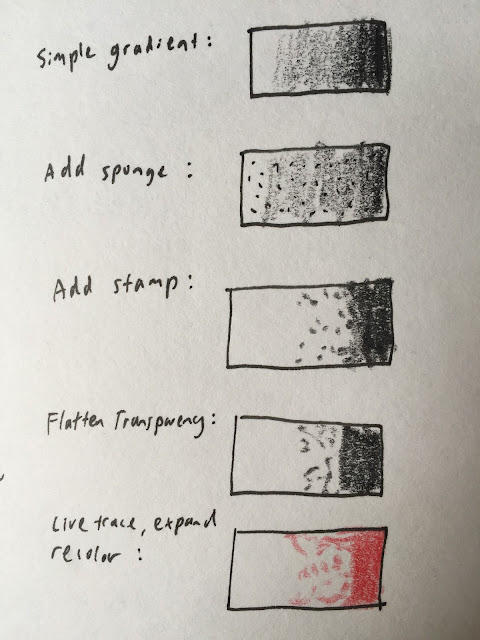 Simple gradient:
Add sponge:
Add stamp:
Flatten Transparency:
Live trace, expand
recolor: